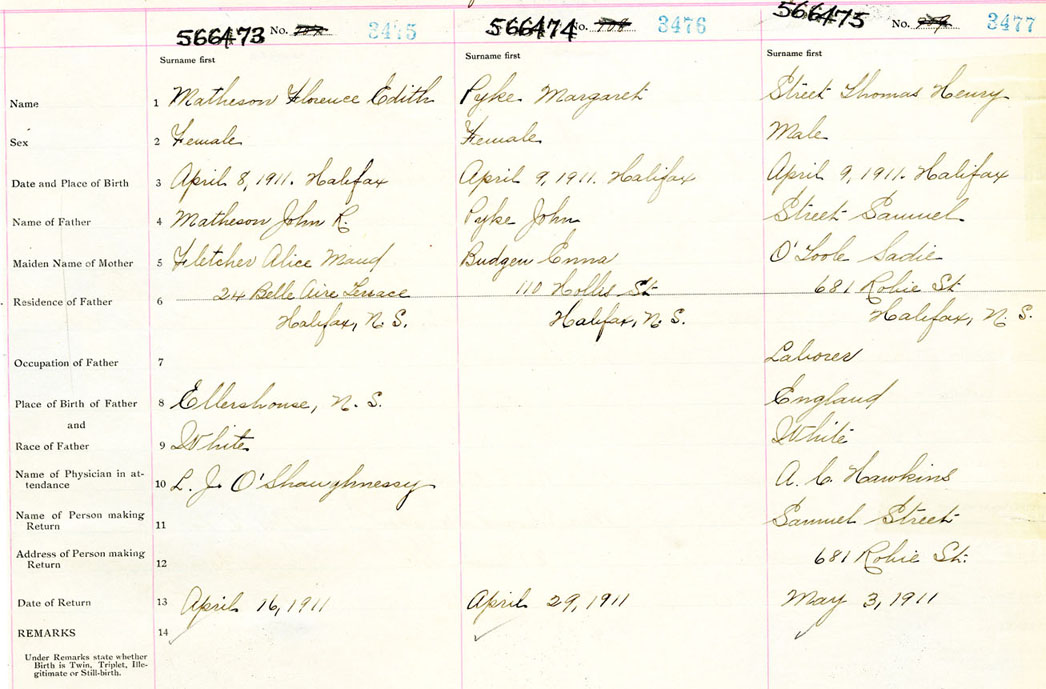 566473 No. 3475 566474 No. 3476 566475 No. 3477
Surname first Surname first Surname first
Name 1 Matheson Florence Edith Pyke Margaret Street Thomas Henry
Sex 2 Female Female Male
Date and Place of Birth 3 April 8, 1911. Halifax April 9, 1911. Halifax April 9, 1911. Halifax
Name of Father 4 Matheson John R. Pyke John Street Samuel
Maiden Name of Mother 5 Fletcher Alice Maud Budgen Emma O'Toole Sadie
Residence of Father 6 24 Belle Aire Terrace 110 Hollis St 681 Robie St
Halifax, N. S. Halifax, N. S. Halifax, N. S.
Occupation of Father 7 Laborer
Place of Birth of Father 8 Ellershouse, N. S. England
and
Race of Father 9 White White
Name of Physician in at-
tendance 10 L. J. O'Shaughnessy A. C. Hawkins
Name of Person making
Return 11 Samuel Street
Address of Person making
Return 12 681 Robie St.
Date of Return 13 April 16, 1911 April 29, 1911 May 3, 1911
REMARKS 14
Under Remarks state whether
Birth is Twin, Triplet, Ille-
gitimate or Still-birth.